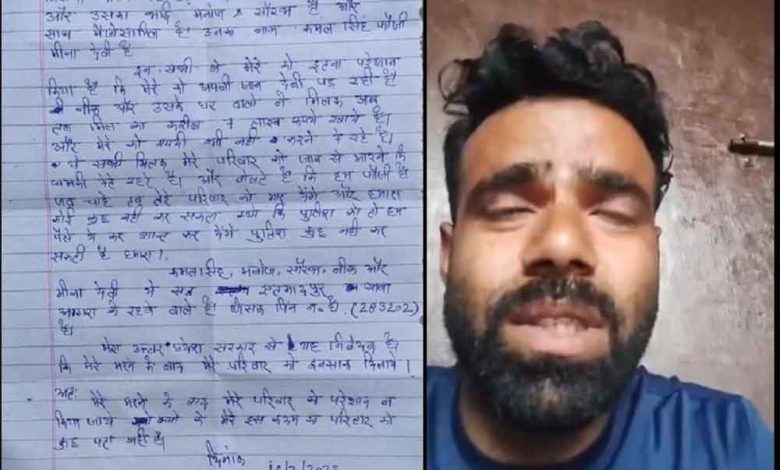 और उसका भाई मनोज व सौरभ है और
साथ में शामिल है। उनका नाम कमल सिंह फौजी
मीना देवी है
इन सभी ने मेरे को इतना परेशान
किया है कि मेरे को अपनी जान देनी पड़ रही है
और उसके घर वालो ने मिलकर अब
तक मिल का करीब 7 लाख रूपये खाये है।
और मेरे को शादी भी नहीं करने दे रहे।
ये सभी मिलकर मेरे परिवार को जान से मारने कि
धमकी देते रहते है। और बोलते है कि हम फौजी है
जब चाहे तब तेरे परिवार को मार देंगे और हमारा
कोई कुछ नहीं कर सकता क्यो कि पुलिस को तो हम
पैसे दे कर शान्त कर देंगे पुलिस कुछ नहीं कर
सकती है हमारा।
कमलसिंह, मनोज, सौरभ, और
मीना देवी ये सब एत्मादपुर
आगरा के रहने वाले है। जिसका पिन न० है (283202)
है।
मेरा उत्तर प्रदेश सरकार से यह निवेदन है।
कि मेरे मरने के बाद मेरे परिवार को इनसाफ दिलाये।
अतः मेरे मरने के बाद मेरे परिवार को परेशान न
किया जाये क्यो के मेरे इस कदम का परिवार को
कुछ पता नहीं है।
दिनांक